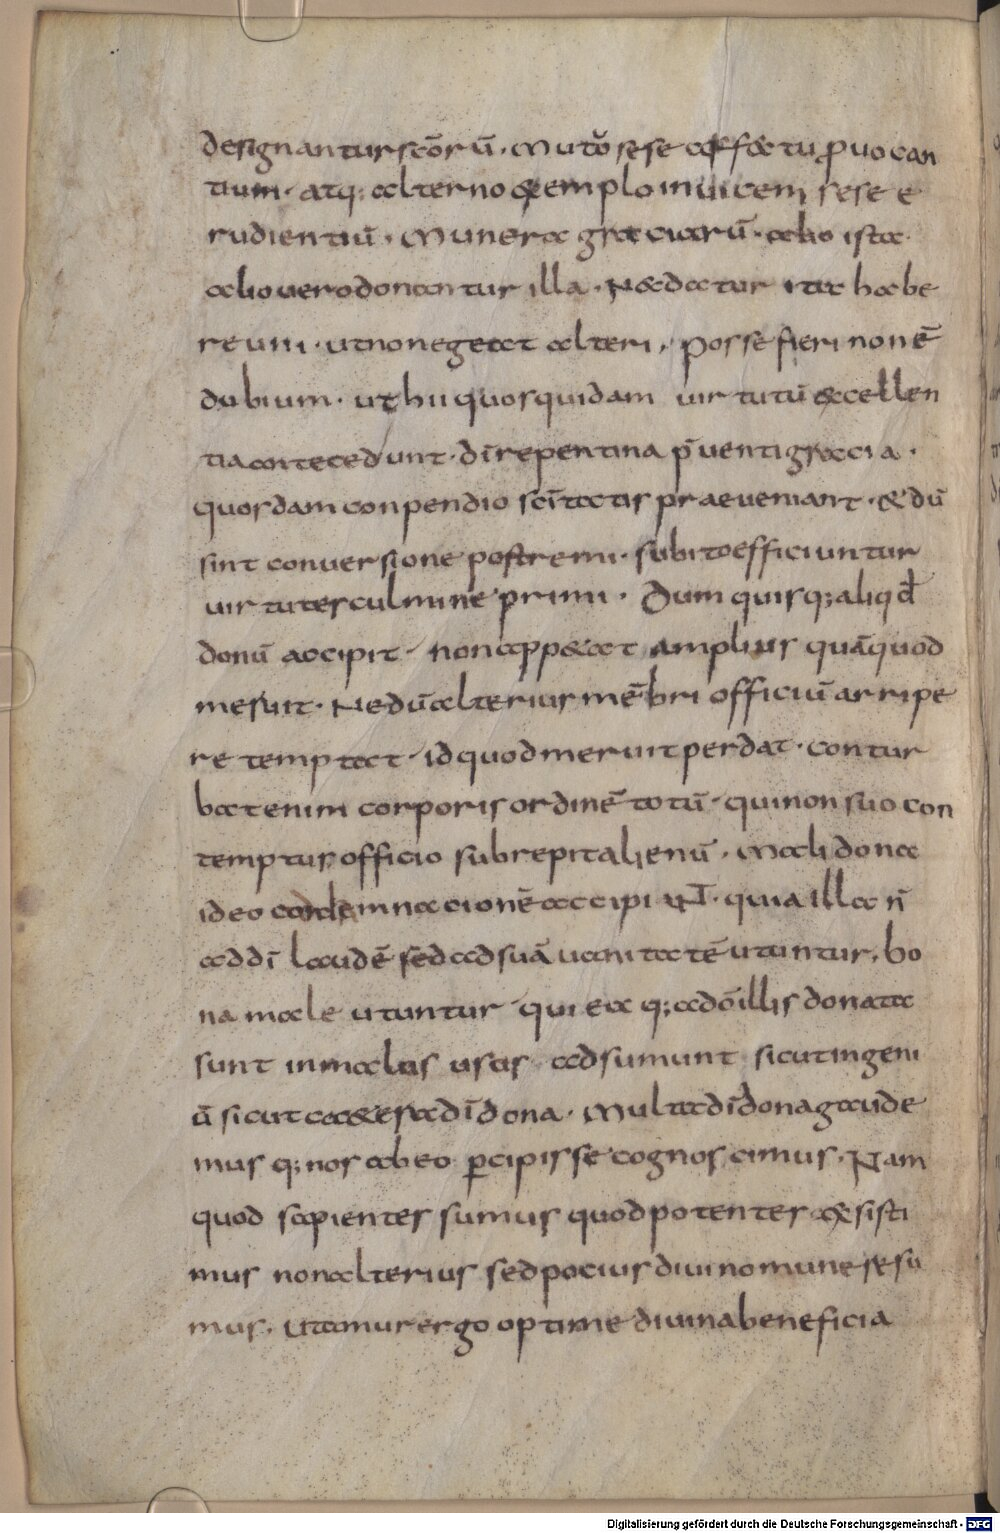 designantur scōrū. Mutuō sese affectu ꝓuocan
tium. atq; alterno exemplo inuicem sese e
rudientiū. Munera graciarū. alio ista
alio uero donantur illa. Ne datur ita habe
re uni. ut non egeat alteri. Posse fieri non ē
dubium. ut hii quos quidam uirtutū excellen
tia antecedunt. dī repentina p̄uenti gracia.
quosdam conpendio scītatis praeueniant. & dū
sint conuersione postremi. subito efficiuntur
uirtutes culmine primi. Dum quisq; aliqđ
donū accipit. non appetat amplius quā quod
meruit. Ne dū alterius mēbri officiū arripe
re temptat. id quod meruit perdat. contur
bat enim corporis ordinē totū. qui non suo con
temptus officio subrepit alienū. Mali dona
ideo ad demnacionē accipiunt. quia illa n̄
ad dī laudē sed ad suā uanitatē utuntur. bo
na male utuntur qui ea q; a dō illis donata
sunt in malus usus adsumunt sicut ingeni
ū sicut caetera dī dona. Multa dī dona gaude
mus q; nos ab eo ꝑcipisse cognoscimus. Nam
quod sapientes sumus quod potentes exsisti
mus non alterius sed pocius diuino munere su
mus. Utamur ergo optime diuina beneficia
Digitalisierung gefördert durch die Deutsche Forschungsgemeinschaft - DFG